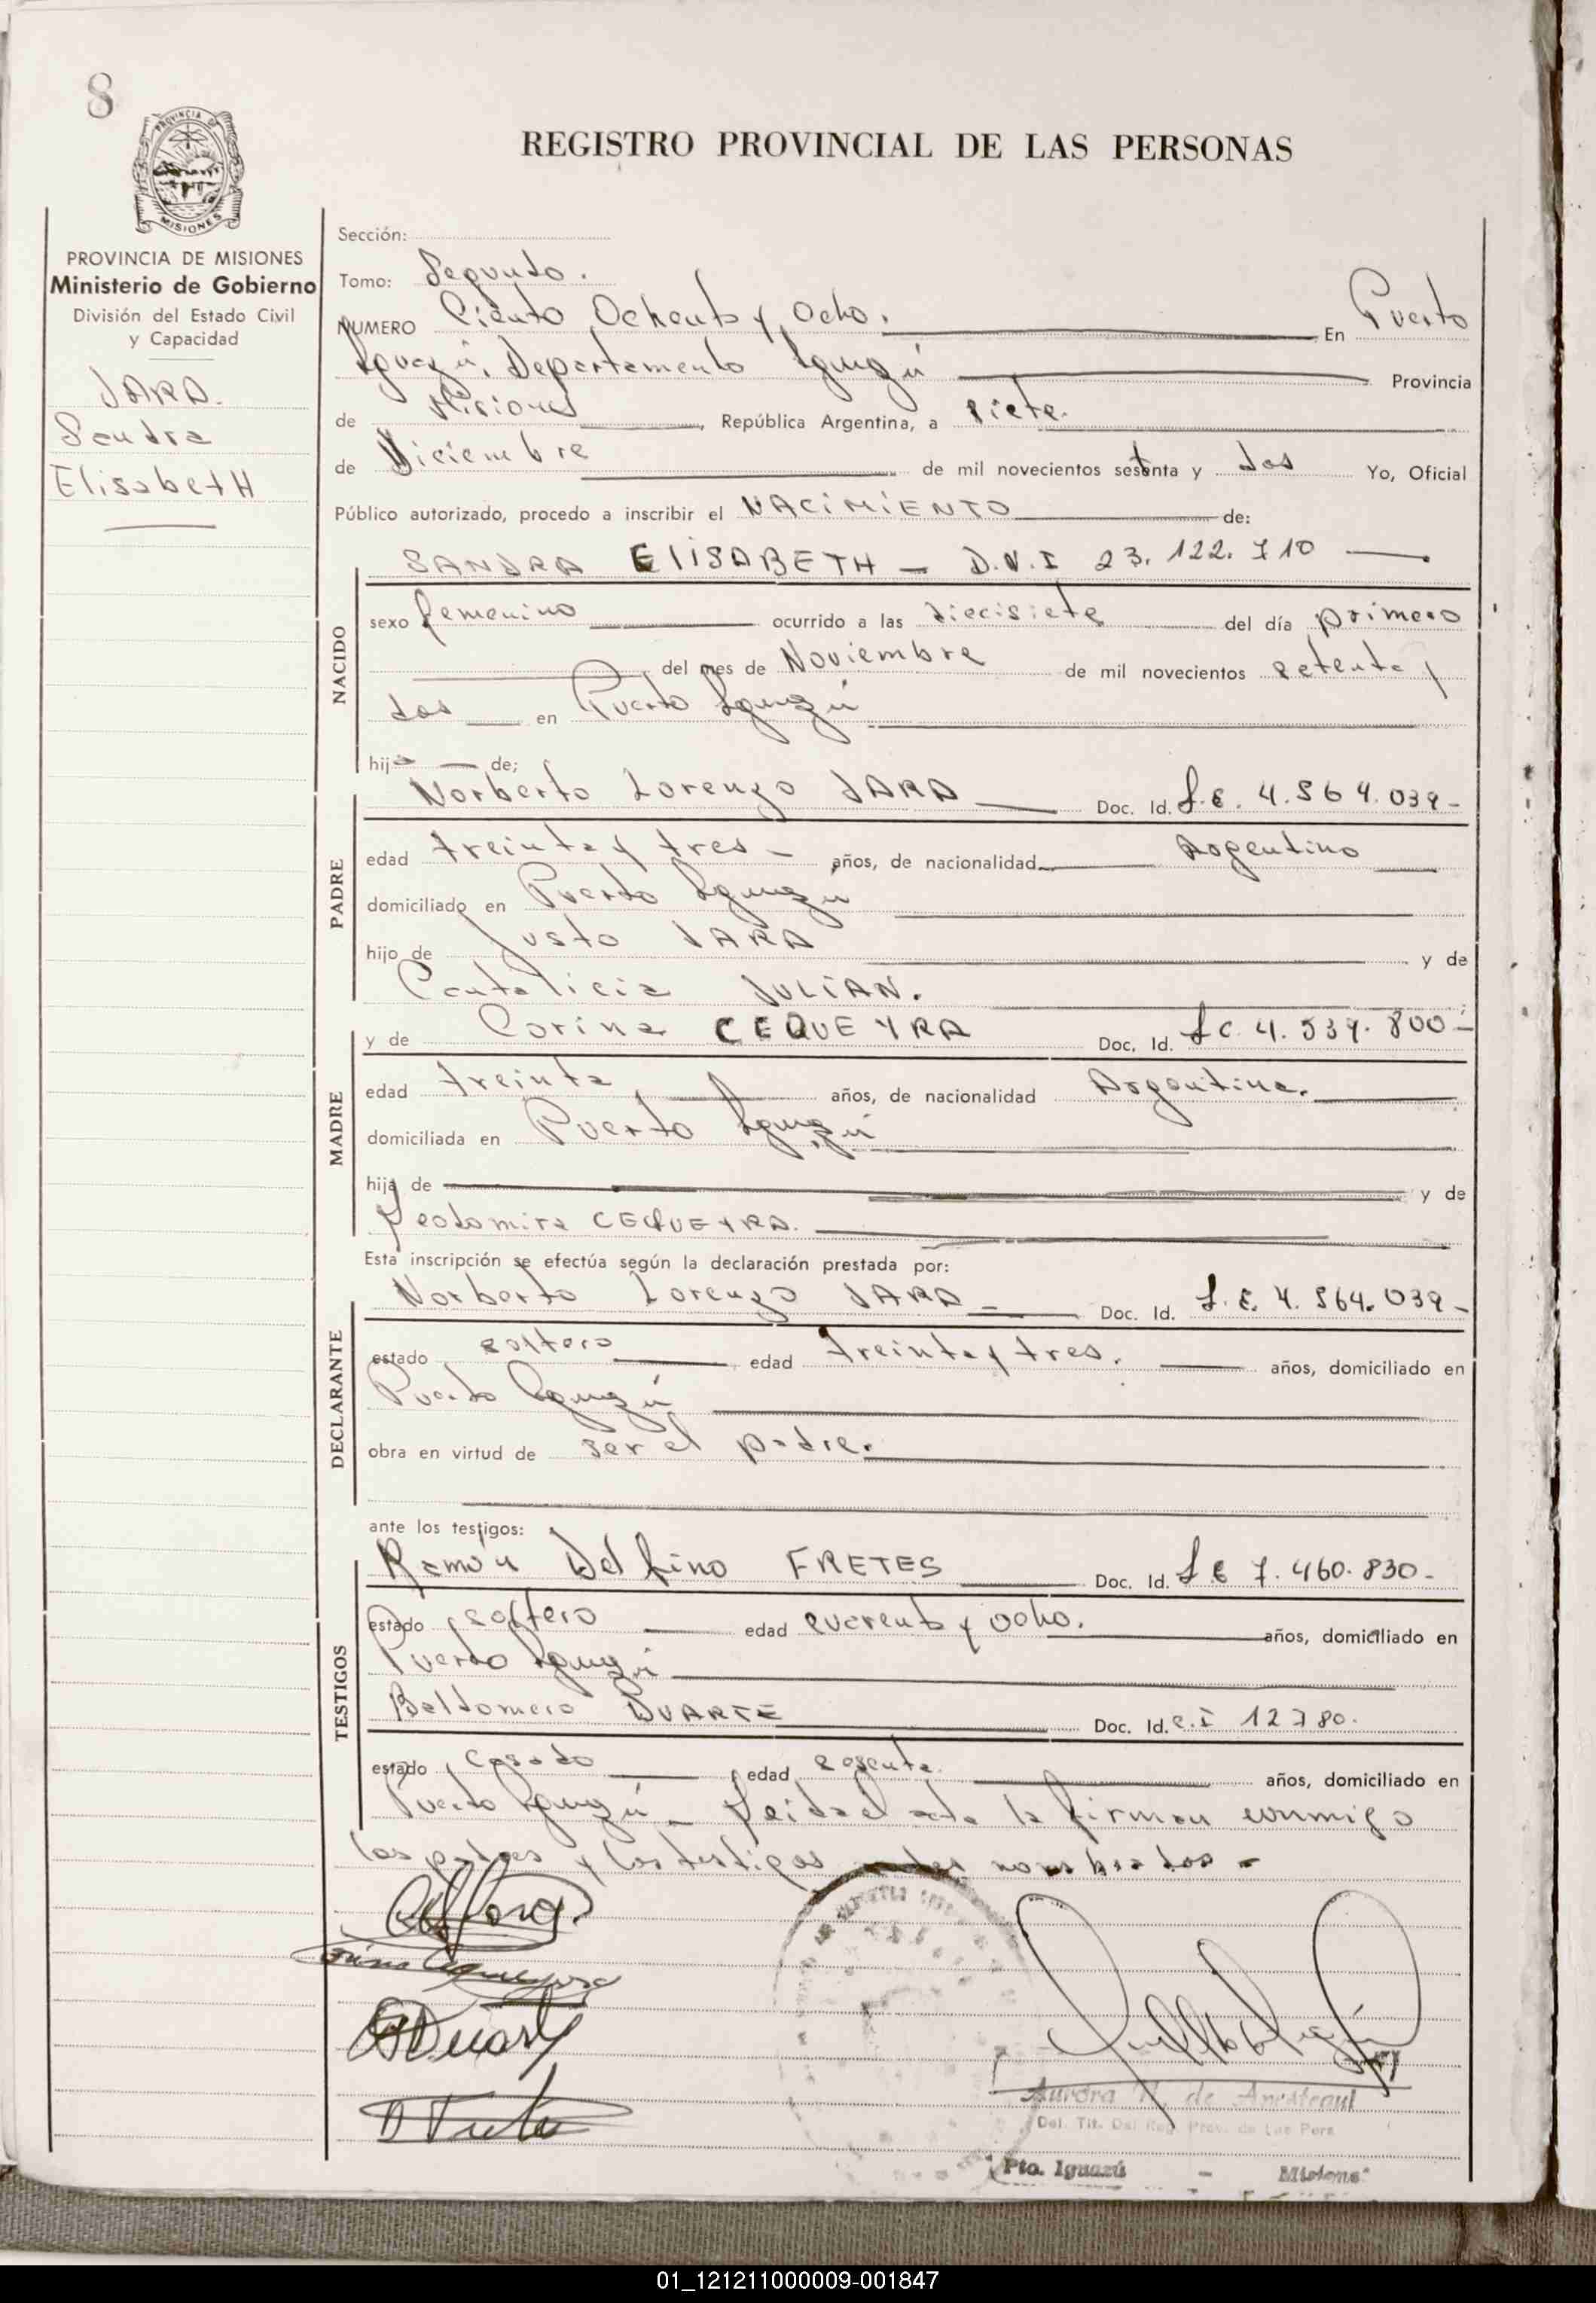 8
PROVINCIA DE
MISIONES
REGISTRO PROVINCIAL DE LAS PERSONAS
PROVINCIA DE MISIONES
Ministerio de Gobierno
División del Estado Civil
y Capacidad
JARA.
Sandra
ElisabetH
Sección:
Tomo: Segundo.
NUMERO Ciento Ochenta y Ocho. En Puerto
Iguazú, Departamento Iguazú Provincia
de Misiones, República Argentina, a siete.
de Diciembre de mil novecientos setenta y dos Yo, Oficial
Público autorizado, procedo a inscribir el NACIMIENTO de:
SANDRA ELISABETH - D.N.I 23.122.710
NACIDO
sexo femenino ocurrido a las diecisiete del día primero
del mes de Noviembre de mil novecientos setenta y
dos en Puerto Iguazú
hija de;
Norberto Lorenzo JARA Doc. Id. L.E. 4.564.039-
PADRE
edad treinta y tres - años, de nacionalidad Argentino
domiciliado en Puerto Iguazú
hijo de Justo JARA y de
Cantalicia JULIAN.
y de Corina CEQUEYRA Doc. Id. LC. 4.539.800-
MADRE
edad treinta años, de nacionalidad Argentina.
domiciliada en Puerto Iguazú
hija de y de
Leodomira CEQUEYRA.
Esta inscripción se efectúa según la declaración prestada por:
Norberto Lorenzo JARA - Doc. Id. L.E. 4.564.039-
DECLARANTE
estado soltero edad treinta y tres. años, domiciliado en
Puerto Iguazú
obra en virtud de ser el padre.
ante los testigos:
Ramón Delfino FRETES Doc. Id. L E 7.460.830-
TESTIGOS
estado soltero edad cuarenta y ocho. años, domiciliado en
Puerto Iguazú
Baldomero DUARTE Doc. Id. C.I 12780.
estado casado edad sesenta. años, domiciliado en
Puerto Iguazú - Leida el acta la firman conmigo
los padres y los testigos antes nombrados -
Aurora de
Del. Tit. Del Reg. Prov. de Las Pers
Pto. Iguazú - Misiones
01_121211000009-001847